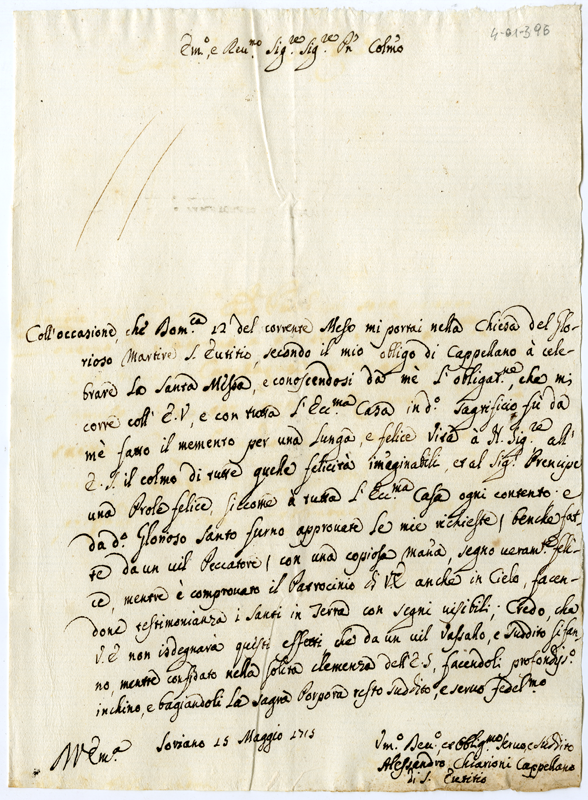 4-01-396
Em.º, e Reu.mo Sig.re Sig.re P'n Colmo
Coll'occasione, che Dom.ca 12 del corrente Mese mi portai nella Chiesa del Glo-
rioso Martire S. Eutitio, secondo il mio obligo di Cappellano à cele-
brare la Santa Messa, e conoscendosi da mè l'obligat.ne, che mi
corre coll'E.V, e con tutta l'Ecc.ma Casa in d.º Sagrificio fù da
mè fatto il memento per una lunga, e felice vita à N. Sig.re all'
E.S. il colmo di tutte quelle felicità imaginabili et al Sig.r Prencipe
una Prole felice, siccome à tutta l'Ecc.ma Casa ogni contento. e
da d.º Glorioso Santo furno approuate le mie richieste ( benche fat
te da un uil Peccatore ( con una copiosa mana, segno ueram.te feli-
ce, mentre è comprouato il Patrocinio di V.E anche in Cielo, facen-
done testimonianza i Santi in Terra con segni uisibili; Credo, che
V.E non isdegnarà questi effetti che da un uil Vassallo, e Suddito si fan
no, mentre confidato nella solita clemenza dell'E.S, facendoli profondiss.º
inchino, e bagiandoli la Sagra Porpora resto suddito, e seruo fedel.mo
Di V. Em.a Soriano 15 Maggio 1715
Vm.º Deu.º et Oblig.mo Seruo, e Suddito
Alessandro Chiarioni Cappellano
di S. Eutitio